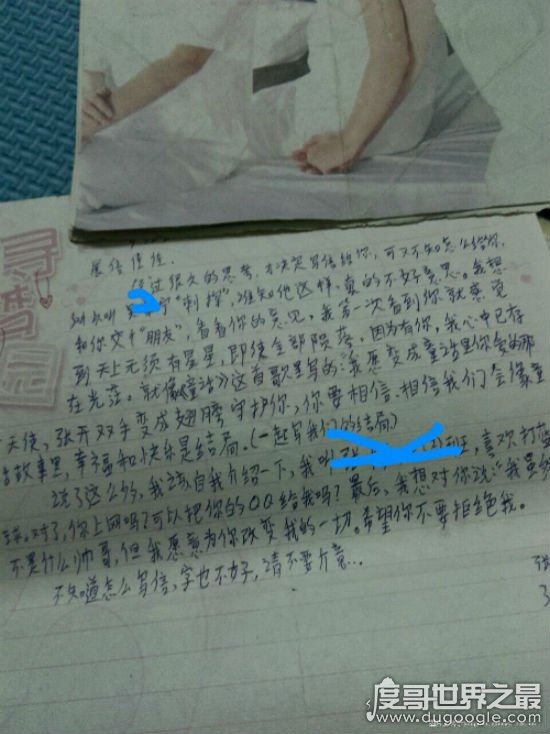 寻梦园
展信佳佳.
经过很久的思考,才决定写信给你,可又不知怎么给你,
"刺探",谁知他这样,真的不好意思。我想
和你交个"朋友",看看你的意见,我第一次看到你就感觉
到天上无须有星星,即使全部陨落,因为有你,我心中已存
在光茫。就像《童话》这首歌里写的:"我愿变成童话里你爱的那
天使,张开双手变成翅膀守护你,你要相信.相信我们会像童
话故事里,幸福和快乐是结局。(一起写我们的结局)
说了这么多,我该自我介绍一下,我叫 班,喜欢打篮
球。对了,你上网吗?可以把你的QQ给我吗?最后,我想对你说:"我虽然
不是什么帅哥,但我愿意为你改变我的一切。希望你不要拒绝我。
不知道怎么写信,字也不好,请不要介意...
度哥世界之最
www.dugoogle.com